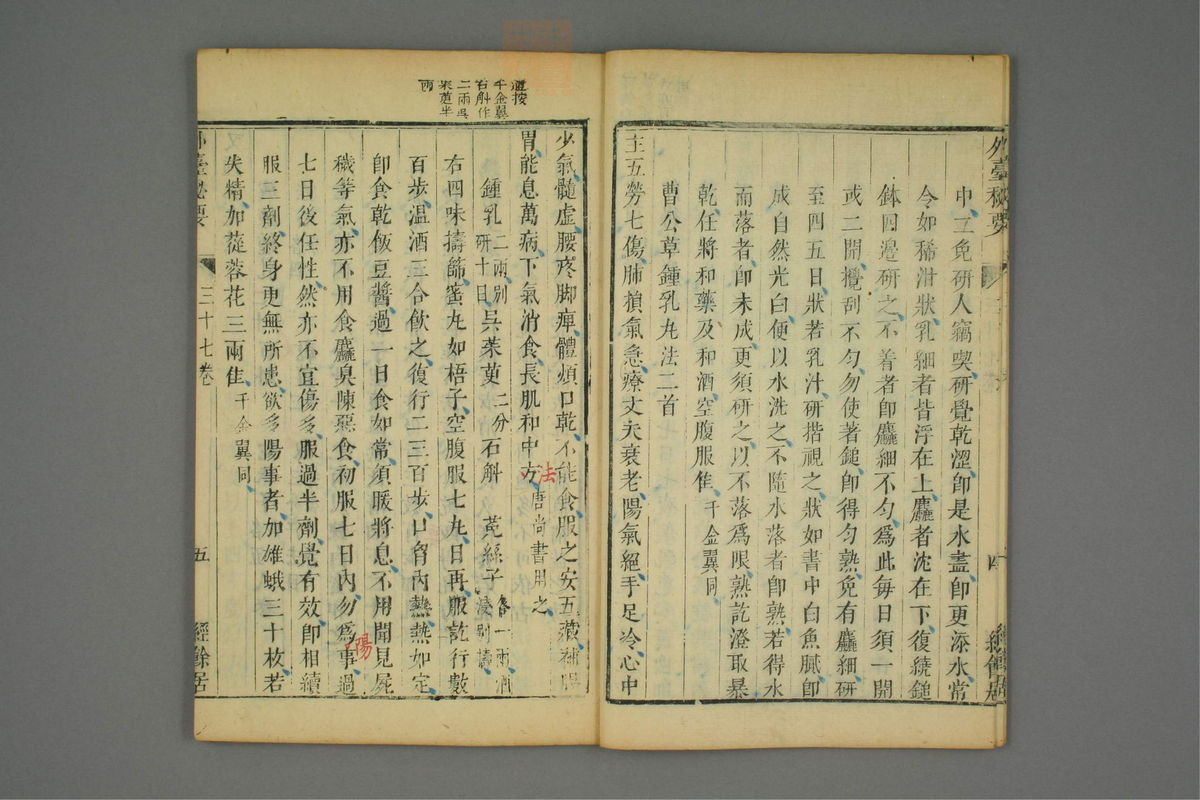 外臺秘要
中工免研人竊喫研覺乾澀卽是水盡卽更添水常
令如稀泔狀乳細者皆浮在上麤者沈在下復繞鎚
鉢四邊研之不着者卽麤細不勻爲此每日須一開
或二開攪刮不勻勿使著鎚卽得勻熟免有麤細研
至四五日狀若乳汁研揩視之狀如書中白魚膩卽
成自然光白便以水洗之不隨水落者卽熟若得水
而落者卽未成更須研之以不落爲限熟訖澄取暴
乾任將和藥及和酒空腹服隹千金翼同
曹公草鍾乳丸法二首
主五勞七傷肺損氣急療丈夫衰老陽氣絕手足冷心中
少氣髓虛腰疼脚痺體煩口乾不能食服之安五藏補腸
胃能息萬病下氣消食長肌和中方法唐尚書用之
鍾乳二兩別研十日吳茱萸二分石斛 菟絲子各一兩酒浸別擣
右四味擣篩蜜丸如梧子空腹服七丸日再服訖行數
百步温酒三合飲之復行二三百步口胷內熱熱如定
卽食乾飯豆醬過一日食如常須暖將息不用聞見屍
穢等氣亦不用食麤臭陳惡食初服七日內勿爲陽事過
七日後任性然亦不宜傷多服過半劑覺有效卽相續
服三劑終身更無所患欲多陽事者加雄蛾三十枚若
失精加蓯蓉花三兩隹千金翼同
外臺秘要 三十七卷 五 經餘居
澧按
千金翼
石斛作
二兩吳
茱萸半
兩